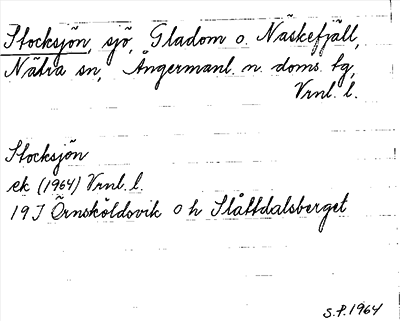 Stocksjön, sjö, Gladom o. Näskefjäll,
Nätra sn, Ångermanl. n. doms. tg,
Vrnl. l.
Stocksjön
ek (1964) Vrnl. l.
19 J Örnsköldsvik o h Slåttdalsberget
S.P. 1964